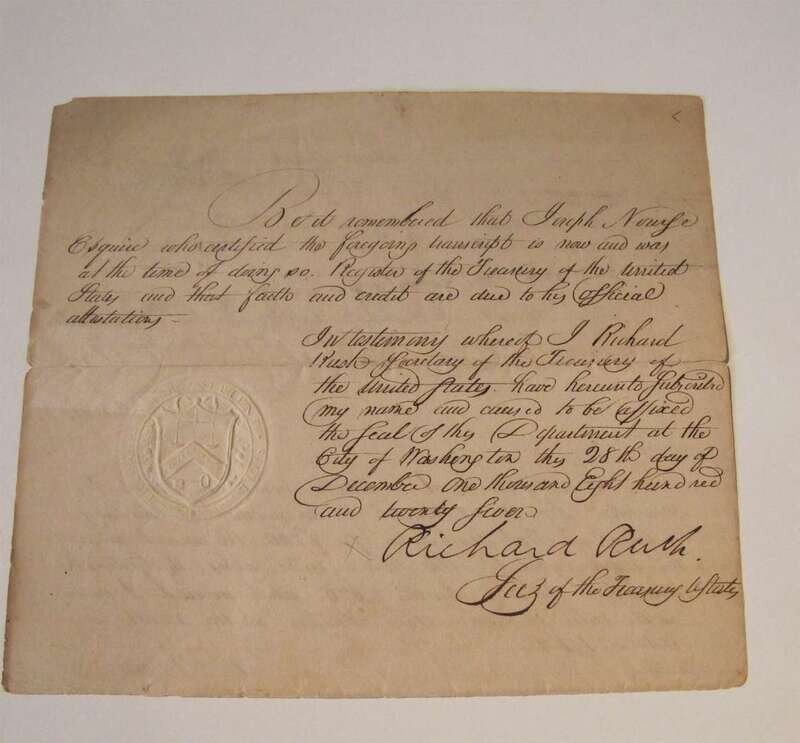 Be it remembered that Joseph Nourse
Esquire who certified the foregoing transcript is now and was
at the time of doing so. Register of the Treasury of the United
States and that faith and credit are due to his official
attestations —
In testimony whereof I Richard
Rush Secretary of the Treasury of
the United States have hereunto Subscribed
my name and caused to be affixed
the seal of this Department at the
City of Washington this 28th day of
December one thousand Eight hundred
and twenty seven
Richard Rush.
Secy of the Treasury UStates